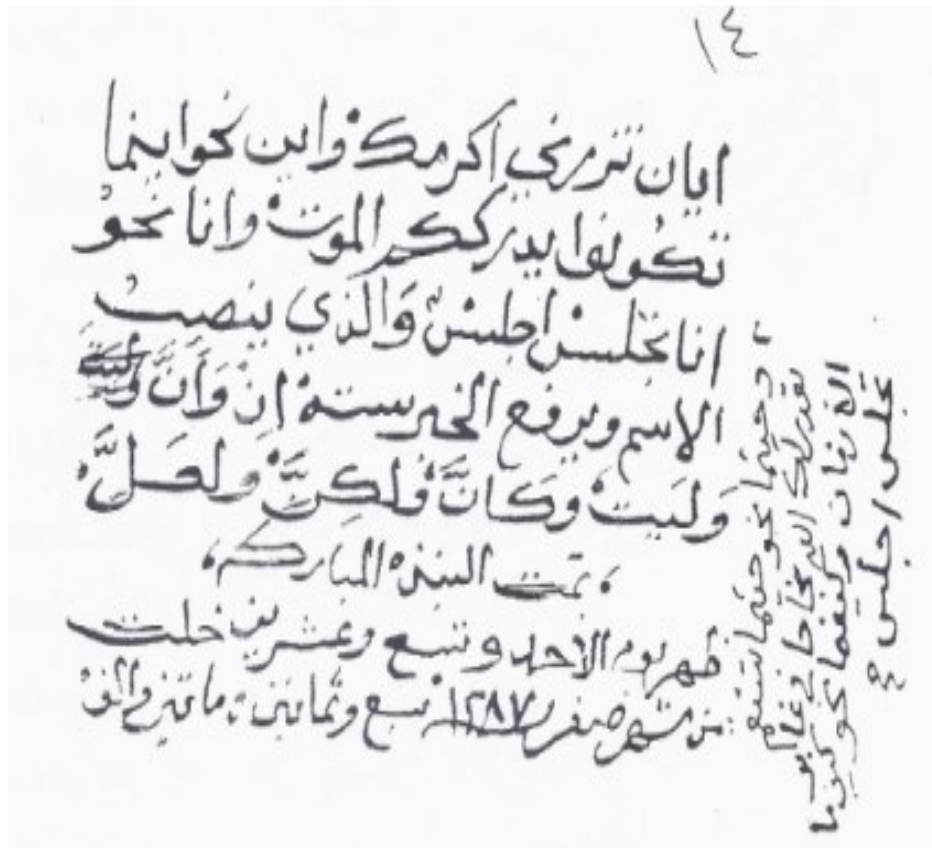 ١٤
ايان تزرني اكرمك واين نحو اينما
تكونوا يدرككم الموت وانا نحو
انا تجلس اجلس والذي ينصب
الاسم ويرفع الخبر ستة ان وان
وليت وكان ولكن ولعل
تمت المباركة
ظهر يوم الاحد وتسع وعشرين خلت
من شهر صفر ١٢٨٧ سبع وثمانين وماتين والف
وحيثما نحو حيثما تستقم
يقدر لك الله نجاحا في غابر
الازمان وكيفما نحو كيفما
تجلس اجلس